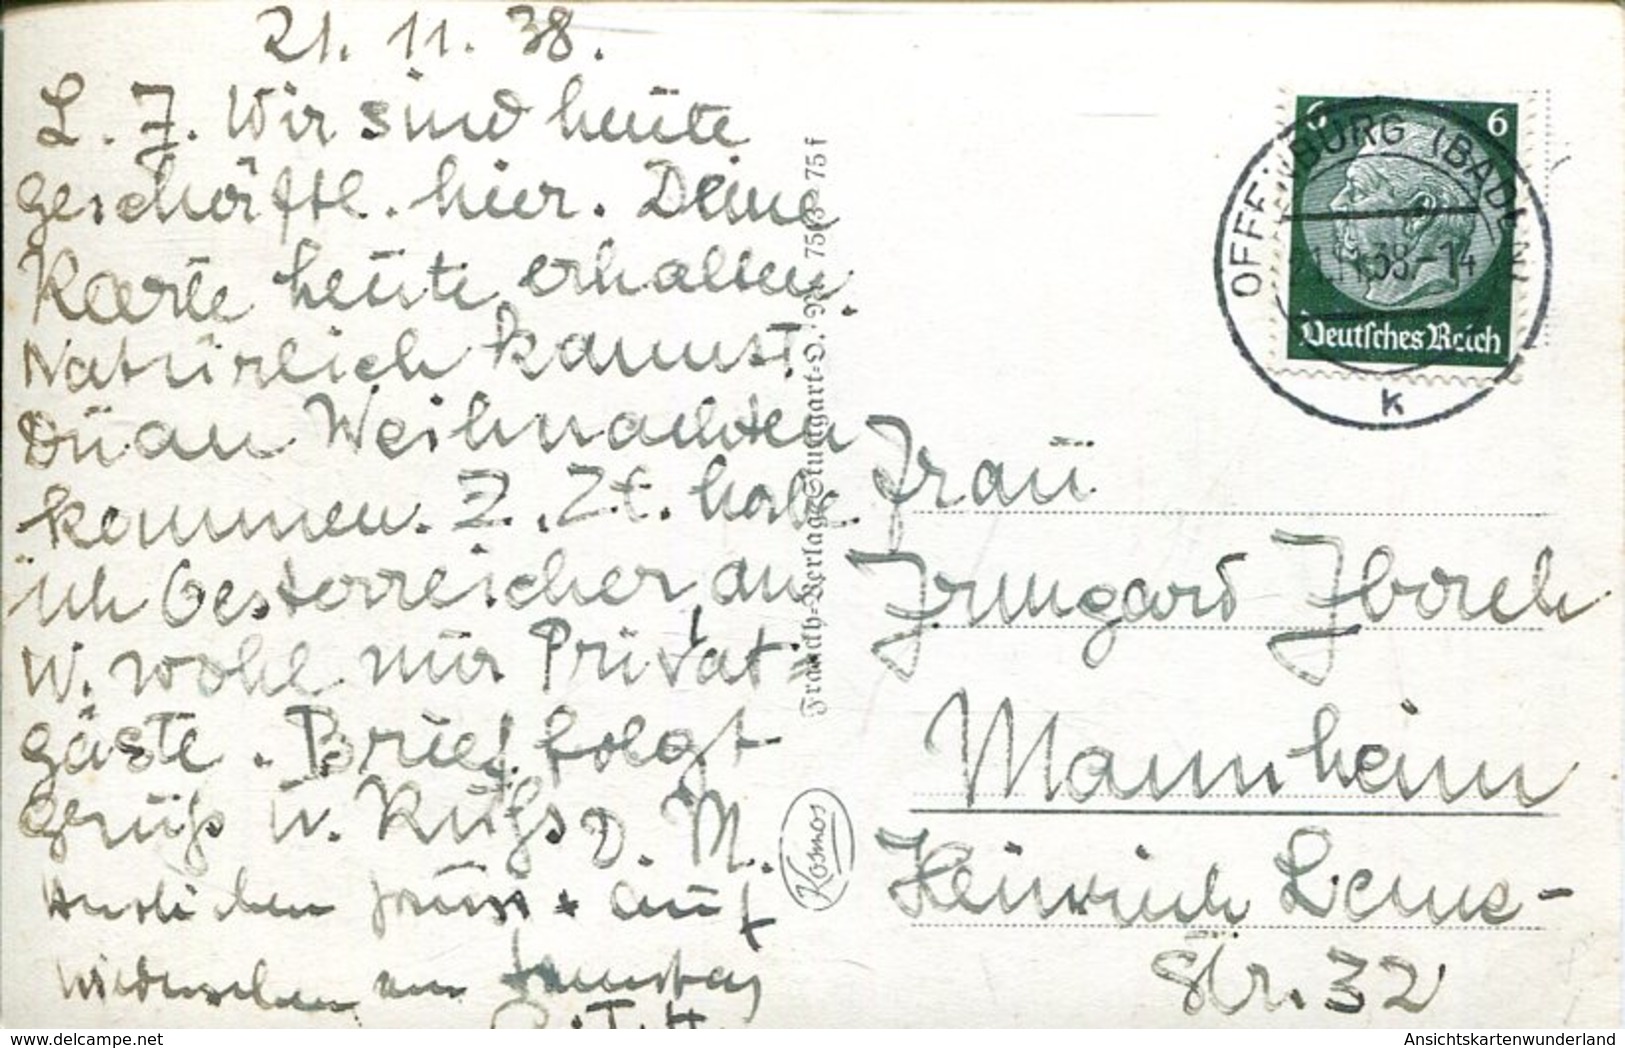 21. 11. 38.
L. J. Wir sind heute
geschäftl. hier. Deine
Karte heute erhalten.
Natürlich kannst
Du an Weihnachten
kommen. Z. Zt. habe
ich Oesterreicher an
W. wohl nur Privat
gäste. Brief folgt
Gruß u. Kuß D. M.
Herzlichen Gruss + auf
Wiedersehen am Samstag
Franckh-Verlag Stuttgart-O. Nr. 75f
Kosmos
6 6
Deutsches Reich
OFFENBURG (BADEN)
.11.38.-14
k
Frau
Irmgard
Mannheim
Heinrich Lanz-
Str. 32
AnsichtskartenWunderland
delcampe.net